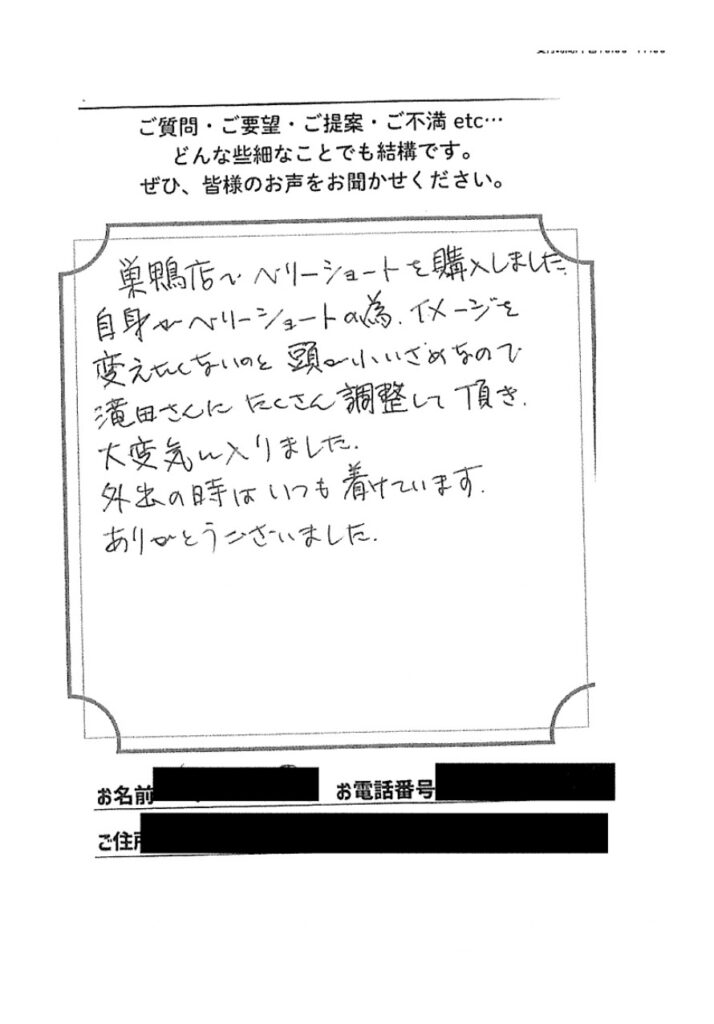 ご質問・ご要望・ご提案・ご不満 etc…
どんな些細なことでも結構です。
ぜひ、皆様のお声をお聞かせください。
巣鴨店でベリーショートを購入しました。
自身がベリーショートの為、イメージを
変えたくないのと頭が小いさめなので
滝田さんにたくさん調整して頂き、
大変気に入りました。
外出の時はいつも着けています。
ありがとうございました。
お名前
お電話番号
ご住所